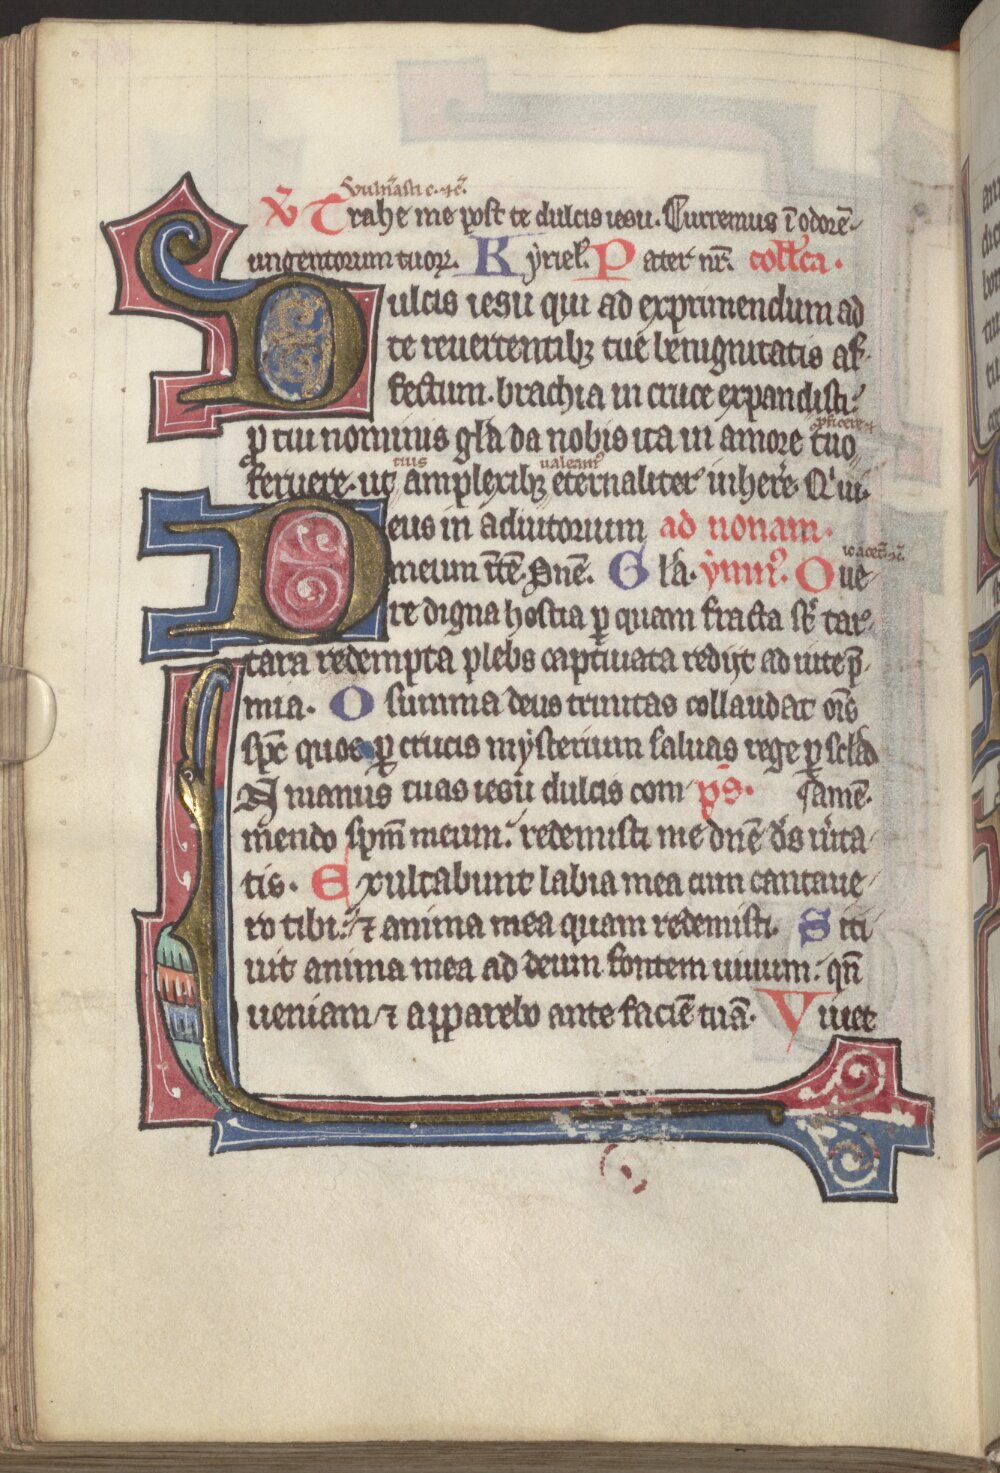 Trahe me post te dulcis iesu. Curremus ī odorē
unguentorum tuoꝝ. Kyriel. Pater nr̄. collc̄a.
Dulcis iesu qui ad exprimendum ad
te reuertentibꝫ tue benignitatis af-
fectum. brachia in cruce expandisti.
ꝓ tui nominis gl̄a da nobis ita in amore tuo
feruere. ut amplexibꝫ eternaliter inherē. Qui
Deus in adiutorium ad nonam.
meum ītē. Dnē. Gl̄a. ymn̄. O ue-
re digna hostia ꝑ quam fracta st̄ tar-
tara redempta plebs captiuata redijt ad uite p̄-
mia. O summa deus trinitas collaudat om̄s
sp̄c quos ꝑ crucis mysterium saluas rege ꝑ scl̄a
In manus tuas iesu dulcis com ps̄. amē.
mendo spm̄ meum. redemisti me dnē ds̄ uita-
tis. Exultabunt labia mea cum cantaue-
ro tibi. ⁊ anima mea quam redemisti. Siti-
uit anima mea ad deum fontem uiuum. qn̄
ueniam ⁊ apparebo ante faciē tuā. Viuet